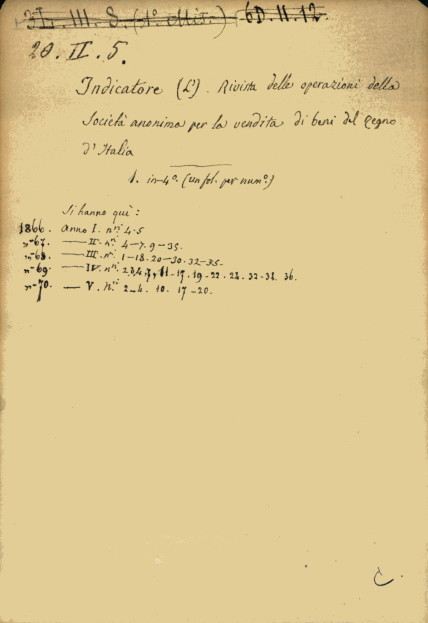 3L. III. 8. (1º. ) 6D. II. 12.
20. II. 5.
Indicatore (L'). Rivista delle operazioni della
Società anonima per la vendita di beni del Regno
d'Italia
1. in-4º. (un fol. per numº.)
Si hanno quì:
1866. anno I. nri 4-5
"-67. — II. nri 4-7. 9-35.
"-68. — III. nri 1-18. 20-30. 32-35.
"-69. — IV. nri 17. 19-22. 32-34. 36.
"-70. — V. nri 2-4. 10. 17-20.
C.